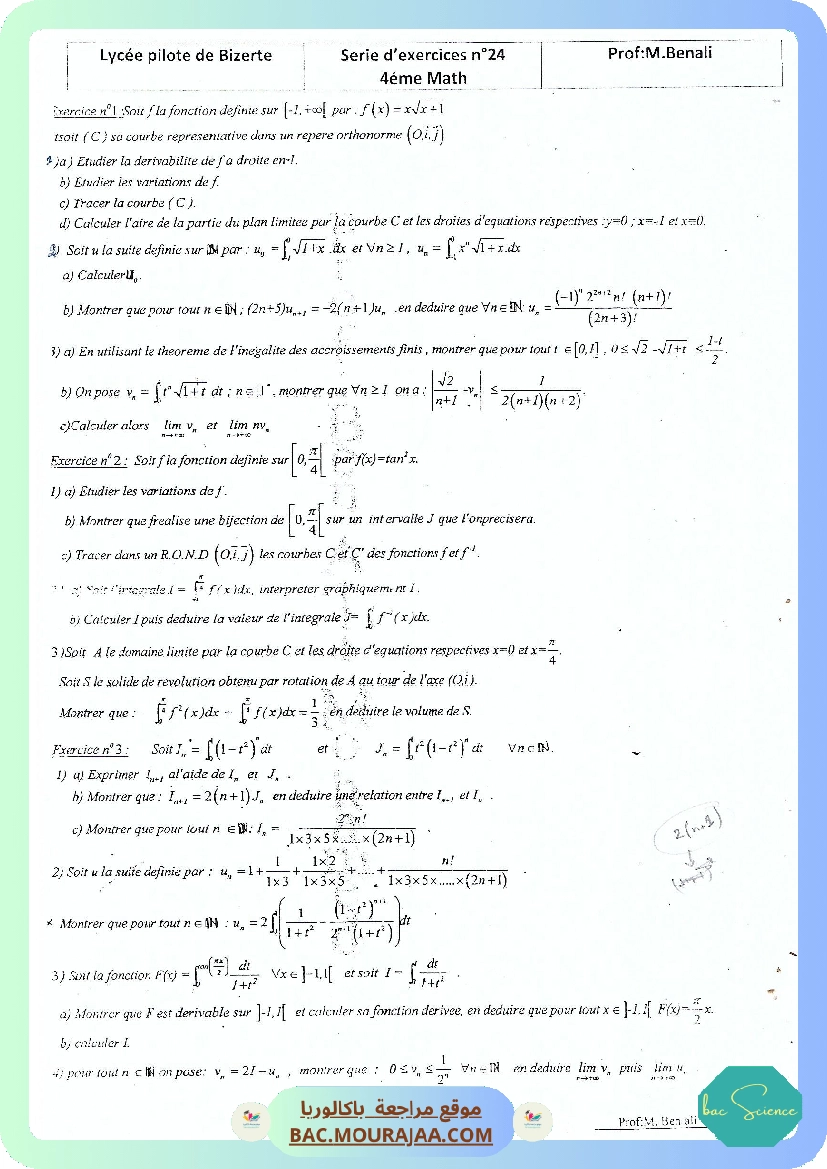 Lycée pilote de Bizerte
Serie d'exercices n°24
4éme Math
Prof:M.Benali
Exercice n°1 :Soit f la fonction definie sur [-1,+∞[ par : f(x) = x√x+1
tsoit ( C ) sa courbe representative dans un repere orthonorme (O,i,j)
)a) Etudier la derivabilite de f a droite en-1.
b) Etudier les variations de f.
c) Tracer la courbe ( C ).
d) Calculer l'aire de la partie du plan limitee par la courbe C et les droites d'equations respectives :y=0 ; x=-1 et x=0.
Soit u la suite definie sur IN par : u₀ = ∫₋₁⁰ √1+x .dx et ∀n ≥ 1 , uₙ = ∫₋₁⁰ xⁿ√1+x.dx
a) Calculer U₀.
b) Montrer que pour tout n ∈ IN ; (2n+5)uₙ₊₁ = -2(n+1)uₙ .en deduire que ∀n∈IN: uₙ = (-1)ⁿ 2²ⁿ⁺² n! (n+1)! / (2n+3)!
3) a) En utilisant le theoreme de l'inegalite des accroissements finis , montrer que pour tout t ∈[0,1] , 0 ≤ √2 -√1+t ≤ 1-t / 2 .
b) On pose vₙ = ∫₀¹ tⁿ√1+t dt ; n ∈ , montrer que ∀n ≥ 1 on a : |√2 / n+1 -vₙ| ≤ 1 / 2(n+1)(n+2) .
c)Calculer alors lim vₙ et lim nvₙ
n→+∞ n→+∞
Exercice n°2 : Soit f la fonction definie sur [0,π/4[ par f(x)=tan²x.
1) a) Etudier les variations de f .
b) Montrer que frealise une bijection de [0,π/4[ sur un intervalle J que l'onprecisera.
c) Tracer dans un R.O.N.D (O,i,j) les courbes C et C' des fonctions f et f⁻¹.
Soit l'integrale I = ∫₀^π/4 f(x)dx, interpreter graphiquement I .
b) Calculer I puis deduire la valeur de l'integrale J= ∫₀¹ f⁻¹(x)dx.
3 )Soit A le domaine limite par la courbe C et les droite d'equations respectives x=0 et x=π/4.
Soit S le solide de revolution obtenu par rotation de A au tour de l'axe (O,i).
Montrer que : ∫₀^π/4 f²(x)dx - ∫₀^π/4 f(x)dx = 1/3 en deduire le volume de S.
Exercice n°3 : Soit Iₙ = ∫₀¹(1-t²)ⁿ dt et Jₙ = ∫₀¹ t²(1-t²)ⁿ dt ∀n∈IN.
1) a) Exprimer Iₙ₊₁ al'aide de Iₙ et Jₙ .
b) Montrer que : Iₙ₊₁ = 2(n+1)Jₙ en deduire une relation entre Iₙ₊₁ et Iₙ .
c) Montrer que pour tout n ∈IN: Iₙ = 2ⁿn! / 1×3×5×.....×(2n+1) .
2(n+1)
2) Soit u la suite definie par : uₙ = 1 + 1 / 1×3 + 1×2 / 1×3×5 +.....+ n! / 1×3×5×.....×(2n+1) .
Montrer que pour tout n ∈ IN : uₙ = 2∫₀¹(1 / 1+t² - (1-t²)ⁿ⁺¹ / 2ⁿ⁺¹(1+t²))dt
3) Soit la fonction F(x) = ∫₀^tan(πx/2) dt / 1+t² ∀x ∈ ]-1,1[ et soit I = ∫₀¹ dt / 1+t² .
a) Montrer que F est derivable sur ]-1,1[ et calculer sa fonction derivee, en deduire que pour tout x ∈ ]-1,1[ F(x)=π/2 x.
b) calculer I.
4) pour tout n ∈ IN on pose: vₙ = 2I - uₙ , montrer que : 0 ≤ vₙ ≤ 1/2ⁿ ∀n∈IN en deduire lim vₙ puis lim uₙ
n→+∞ n→+∞
موقع مراجعة باكالوريا
BAC.MOURAJAA.COM
Prof:M. Ben ali
bac Science